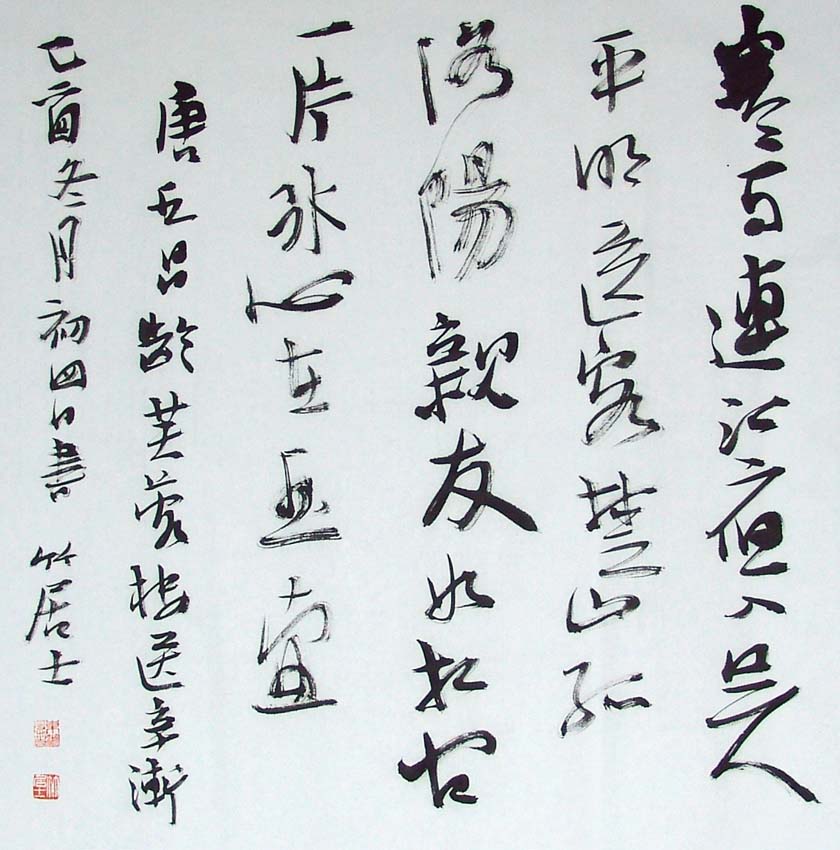 寒雨連江夜入吳
平明送客楚山孤
洛陽親友如相問
一片冰心在玉壺
唐王昌齡芙蓉樓送辛漸
乙酉冬月初四日書 竹居士